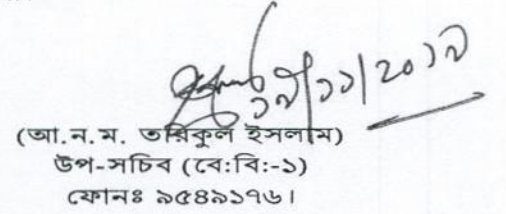 ১৯/১১/২০১৯
(আ.ন.ম. তরিকুল ইসলাম)
উপ-সচিব (বে:বি:-১)
ফোনঃ ৯৫৪৯১৭৬।